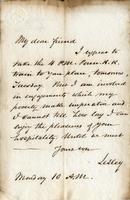 My dear friend
I expect to
take the 4 P.M. Penn R.R.
train to your place, tomorrow,
Tuesday. But I am involved
in engagements which my
make imperative and
I cannot tell how long I can
enjoy the pleasures of your
hospitality. Until we meet
Yours ever
Lesley
Monday 10 A.M.